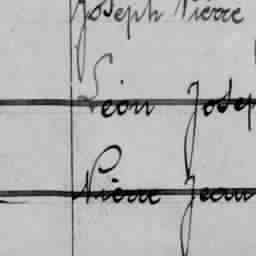 Joseph Pierre
Léon Josep
Pierre Jean